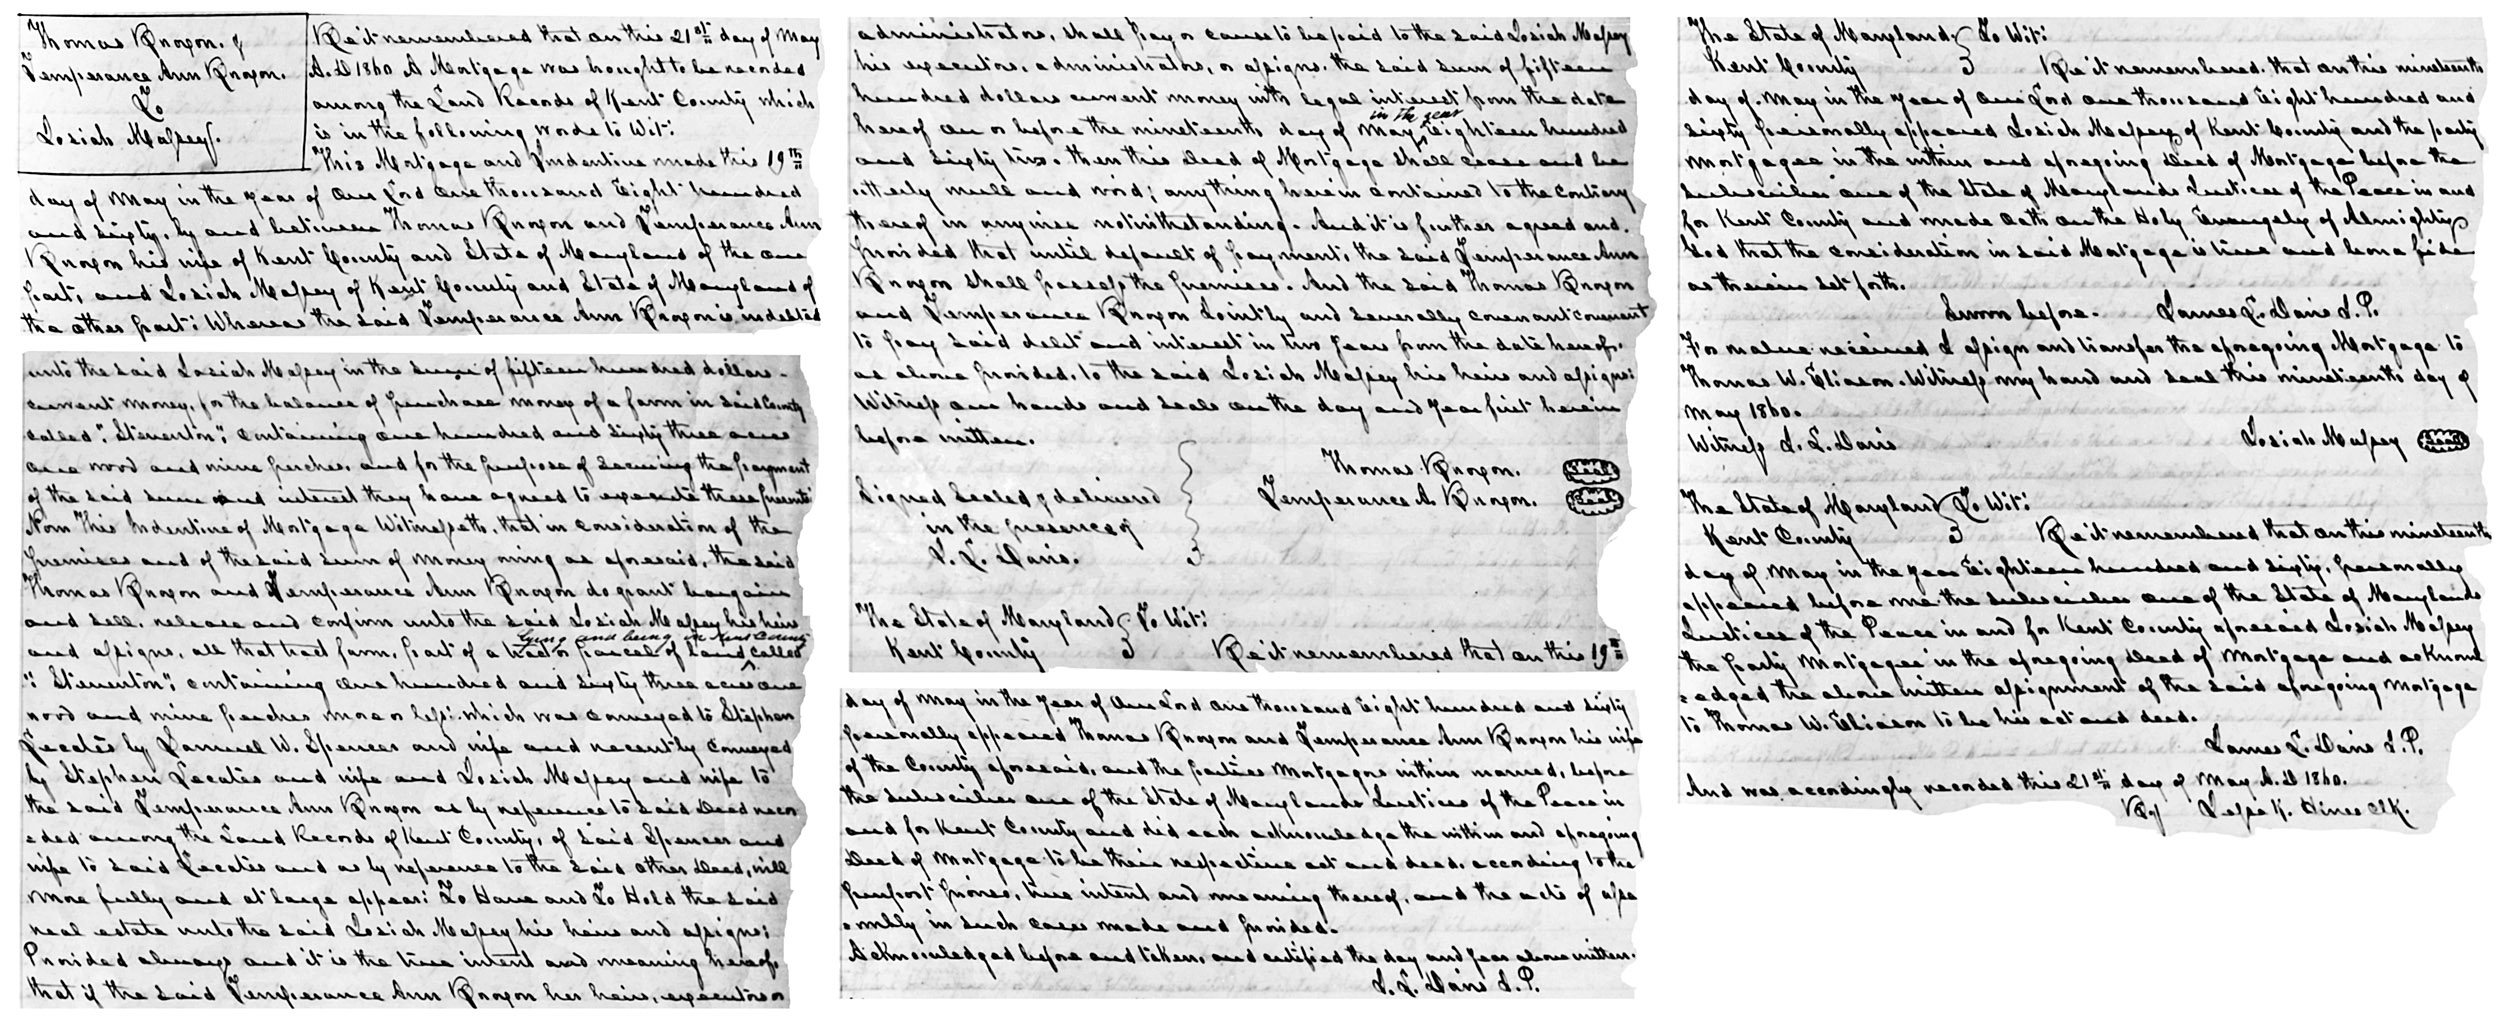 Thomas Broxon. &
Temperance Ann Broxon.
To
Josiah Massey.
Be it remembered that on this 21st day of May
A.D 1860 A Mortgage was brought to be recorded
among the Land Records of Kent County which
is in the following words to Wit:
This Mortgage and Indenture made this 19th
day of May in the year of our Lord one thousand Eight hundred
and sixty, by and between Thomas Broxon and Temperance Ann
Broxon his wife of Kent County and State of Maryland of the one
part, and Josiah Massey of Kent County and State of Maryland of
the other part: Whereas the said Temperance Ann Broxon is indebted
unto the said Josiah Massey in the sum of fifteen hundred dollars
current money, for the balance of purchase money of a farm in said County
called "Steventon", containing one hundred and sixty three acres
one rood and nine perches, and for the purpose of securing the payment
of the said sum and interest they have agreed to execute these presents
Now This Indenture of Mortgage Witnesseth, that in consideration of the
premises and of the said sum of money owing as aforesaid, the said
Thomas Broxon and Temperance Ann Broxon do grant bargain
and sell, release and confirm unto the said Josiah Massey his heirs
lying and being in Kent County
and assigns, all that tract farm, part of a tract or parcel of land called
"Steventon", containing one hundred and sixty three acres one
rood and nine perches more or less. which was conveyed to Stephen
Lecates by Samuel W. Spencer and wife and recently conveyed
by Stephen Lecates and wife and Josiah Massey and wife to
the said Temperance Ann Broxon as by reference to said Deed recor
=ded among the Land Records of Kent County, of said Spencer and
wife to said Lecates and as by reference to the said other Deed, will
more fully and at large appear: To Have and To Hold the said
real estate unto the said Josiah Massey his heirs and assigns;
Provided always and it is the true intent and meaning hereof,
that if the said Temperance Ann Broxon her heirs, executors or
administrators, shall pay or cause to be paid to the said Josiah Massey
his executors, administrators, or assigns, the said sum of fifteen
hundred dollars current money with legal interest from the date
in the year
hereof on or before the nineteenth day of May Eighteen hundred
and sixty two. then this Deed of Mortgage shall cease and be
utterly null and void; anything herein contained to the contrary
thereof in anywise notwithstanding. And it is further agreed and
provided that until default of payment, the said Temperance Ann
Broxon shall possess the premises. And the said Thomas Broxon
and Temperance Broxon Jointly and severally covenant covenant
to pay said debt and interest in two years from the date hereof,
as above provided, to the said Josiah Massey his heirs and assigns:
Witness our hands and seals on the day and year first herein
before written.
Thomas Broxon. Seal
Signed Sealed & delivered Temperance A. Broxon. Seal
in the presence of
J. L. Davis.
The State of Maryland To Wit:
Kent County Be it remembered that on this 19th
day of May in the year of our Lord one thousand Eight hundred and sixty
personally appeared Thomas Broxon and Temperance Ann Broxon his wife
of the County aforesaid, and the parties Mortgagors within named, before
the subscriber one of the State of Marylands Justices of the Peace in
and for Kent County and did each acknowledge the within and aforegoing
Deed of Mortgage to be their respective act and deed, according to the
purport hereof, true intent and meaning thereof, and the acts of asse
=mbly in such cases made and provided.
Acknowledged before and taken, and certified the day and year above written.
J. L. Davis J. P.
The State of Maryland. To Wit:
Kent County Be it remembered. that on this nineteenth
day of. May in the year of our Lord one thousand Eight hundred and
sixty personally appeared Josiah Massey of Kent County and the party
Mortgagee in the within and aforegoing Deed of Mortgage before the
subscriber one of the State of Marylands Justices of the Peace in and
for Kent County and made oath on the Holy Evangely of Almighty
God that the consideration in said Mortgage is true and bona fide
as therein set forth.
Sworn before. James L. Davis J. P.
For value received I assign and transfer the aforegoing Mortgage to
Thomas W. Eliason. Witness my hand and seal this nineteenth day of
May 1860.
Witness J. L. Davis Josiah Massey Seal
The State of Maryland To Wit:
Kent County Be it remembered that on this nineteenth
day of May in the year Eighteen hundred and sixty, personally
appeared before me the subscriber one of the State of Marylands
Justices of the Peace in and for Kent County aforesaid Josiah Massey
the party Mortgagee in the aforegoing Deed of Mortgage and acknowl
=edged the above written assignment of the said aforegoing Mortgage
to Thomas W. Eliason to be his act and deed.
James L. Davis J. P.
And was accordingly recorded this 21st day of May A.D 1860.
By Jesse K. Hines Clk.